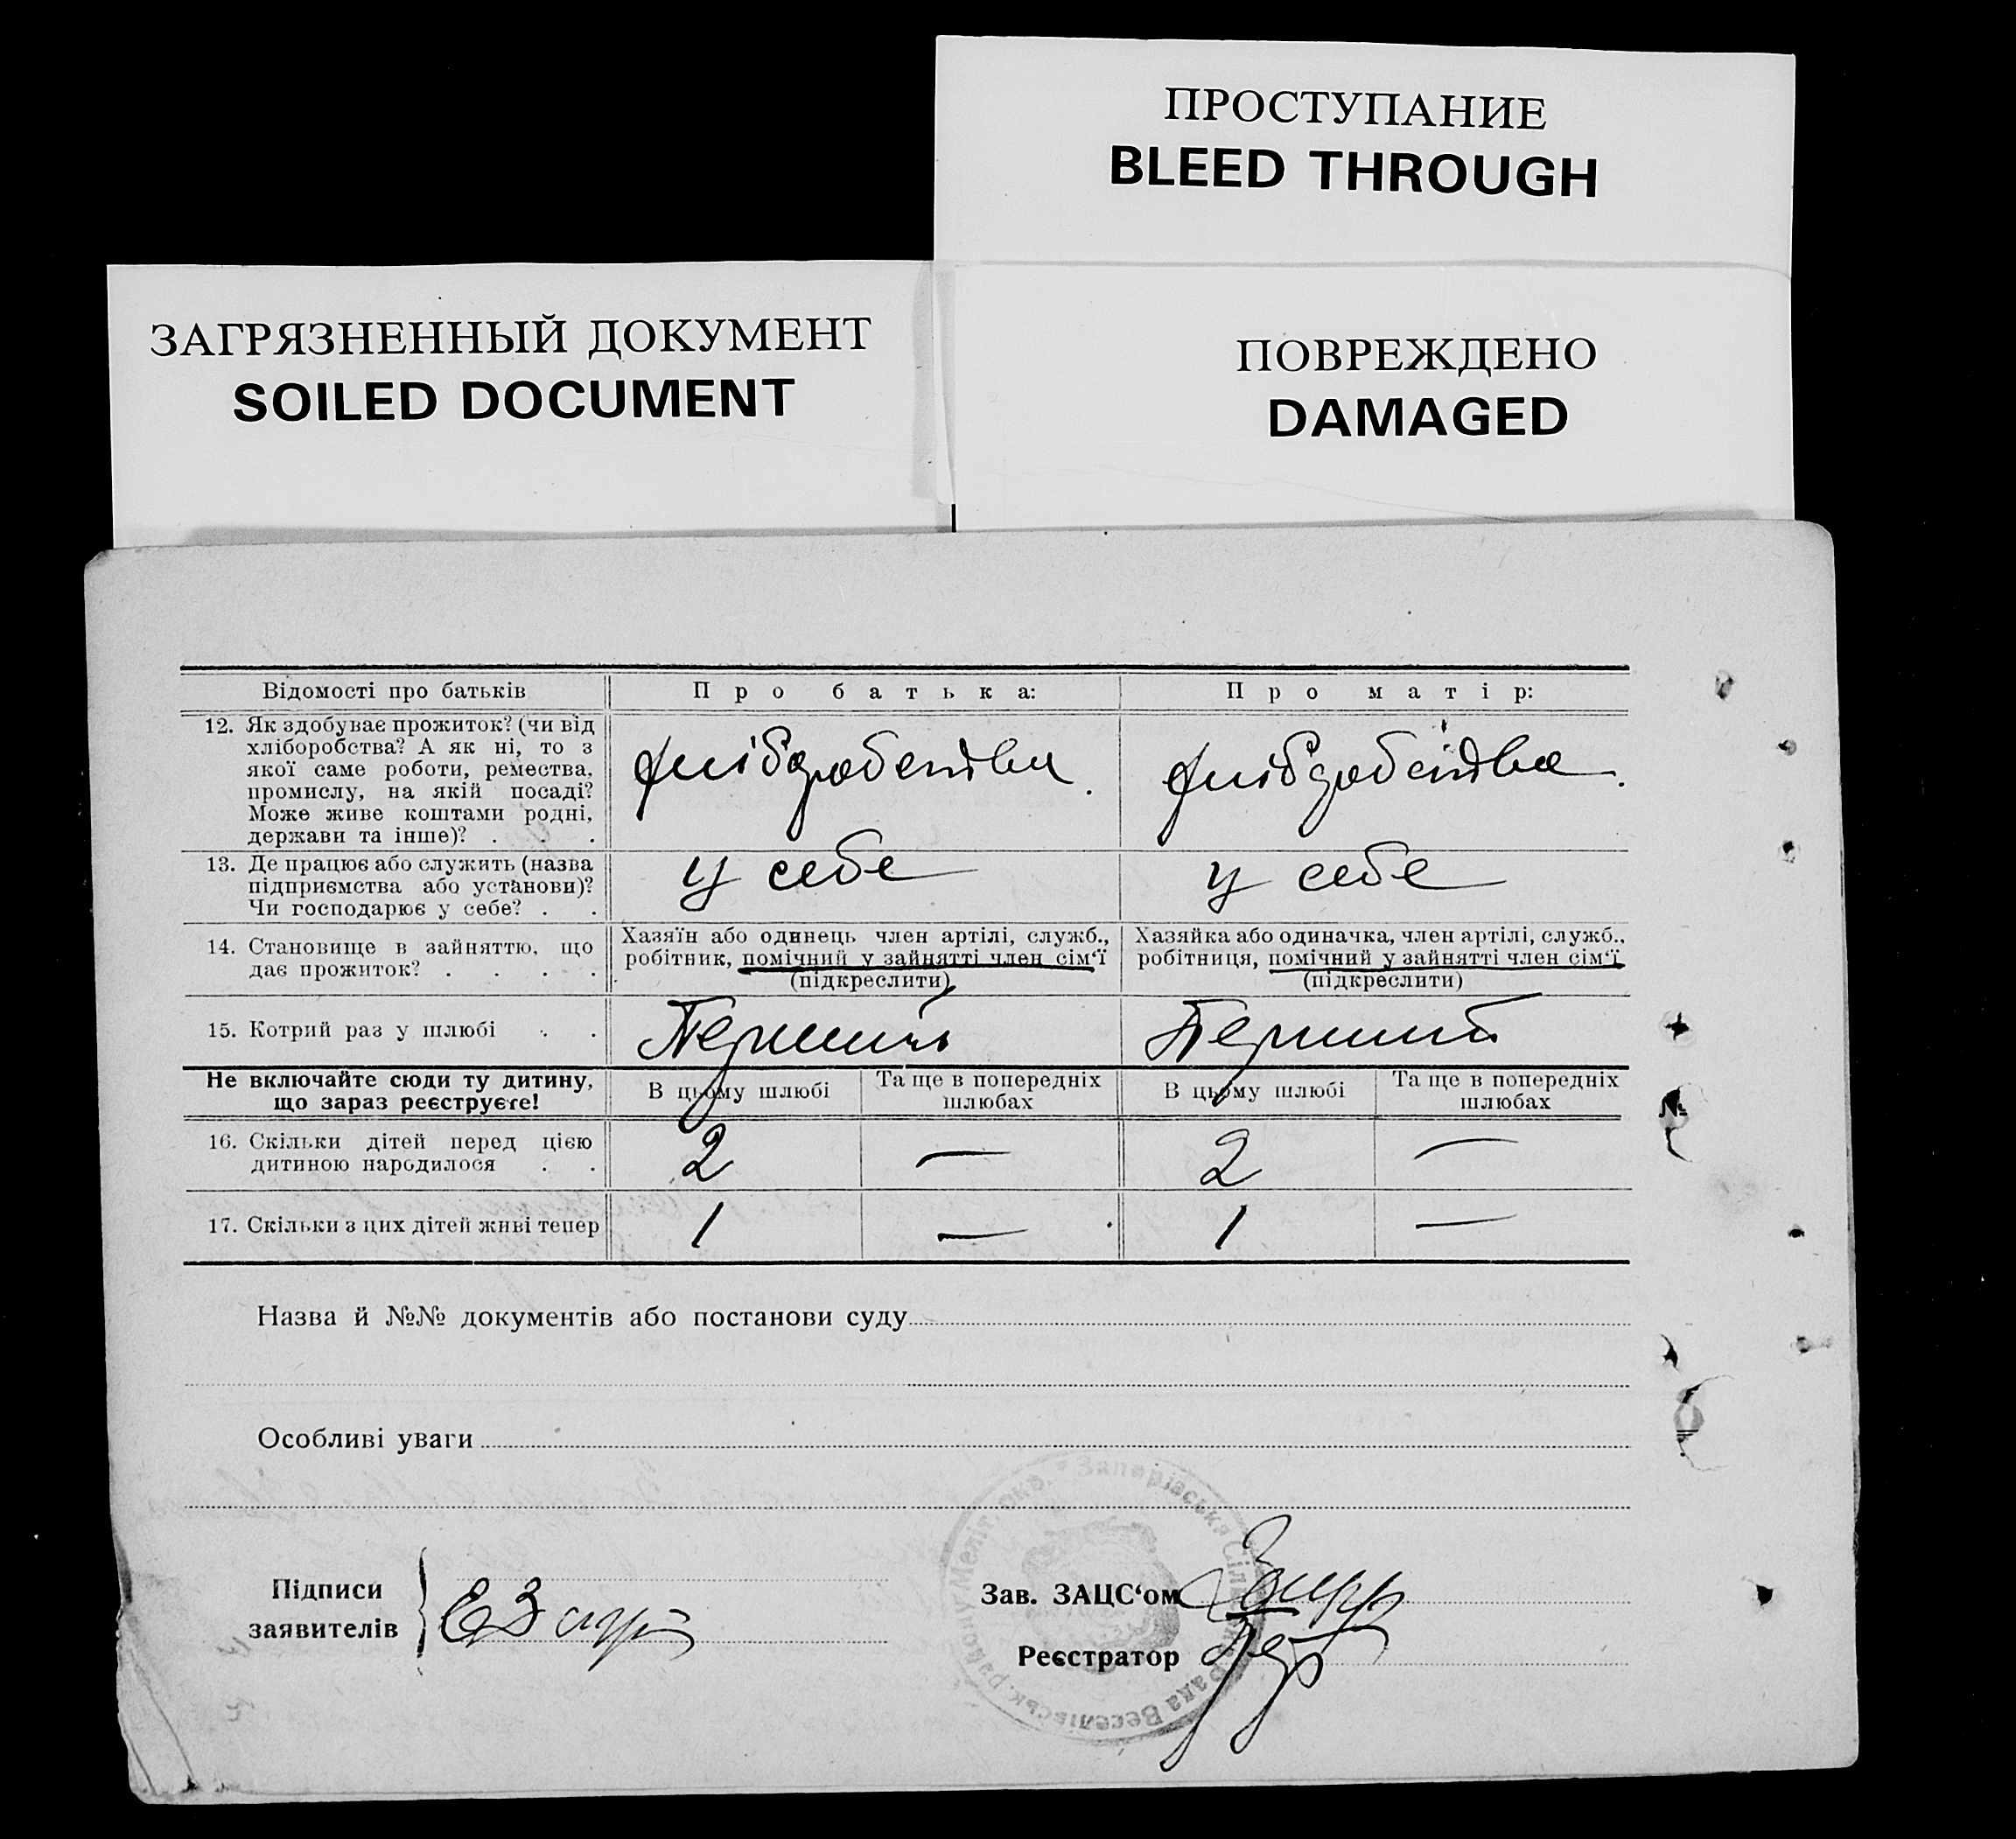 ПРОСТУПАНИЕ
BLEED THROUGH
ЗАГРЯЗНЕННЫЙ ДОКУМЕНТ
SOILED DOCUMENT
ПОВРЕЖДЕНО
DAMAGED
Відомості про батьків
Про батька:
Про матір:
12. Як здобуває прожиток? (чи від
хліборобства? А як ні, то з
якої саме роботи, ремества,
промислу, на якій посаді?
Може живе коштами родні,
держави та інше)? . . .
хліборобства.
хліборобства.
13. Де працює або служить (назва
підприємства або установи)?
Чи господарює у себе? . .
у себе
у себе
14. Становище в зайняттю, що
дає прожиток? . . . .
Хазяїн або одинець член артілі, служб.,
робітник, помічний у зайнятті член сім‘ї
(підкреслити)
Хазяйка або одиначка, член артілі, служб.,
робітниця, помічний у зайнятті член сім‘ї
(підкреслити)
15. Котрий раз у шлюбі . .
Перший
Перший
Не включайте сюди ту дитину,
що зараз реєструєте!
В цьому шлюбі
Та ще в попередніх
шлюбах
В цьому шлюбі
Та ще в попередніх
шлюбах
16. Скільки дітей перед цією
дитиною народилося . .
2
—
2
—
17. Скільки з цих дітей живі тепер
1
—
1
—
Назва й №№ документів або постанови суду
Особливі уваги
Підписи
заявителів
Зав. ЗАЦС‘ом
Реєстратор
Запорізська Сільська Рада Веселівськ. району Меліт. окр.